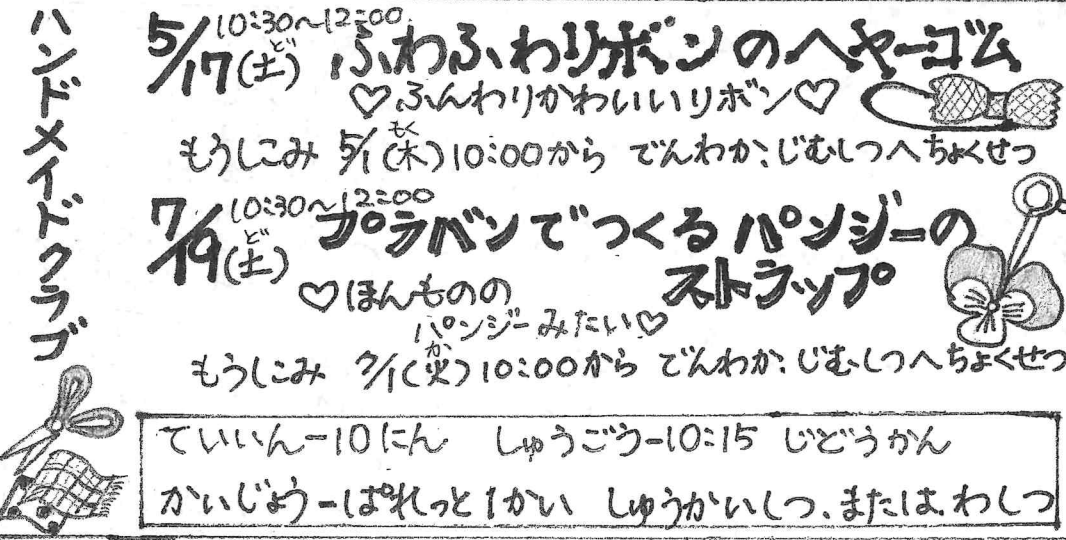 ハンドメイドクラブ
5/17(土)
ど
10:30~12:00
ふわふわリボンのヘヤーゴム
♡ふんわりかわいいリボン♡
もく
もうしこみ 5/1(木)10:00から でんわか、じむしつへちょくせつ
7/19(土)
ど
10:30~12:00
プラバンでつくるパンジーの
ストラップ
♡ほんものの
パンジーみたい♡
か
もうしこみ 7/1(火)10:00から でんわか、じむしつへちょくせつ
ていいんー10にん しゅうごうー10:15 じどうかん
かいじょうーぱれっと1かい しゅうかいしつ、または、わしつ